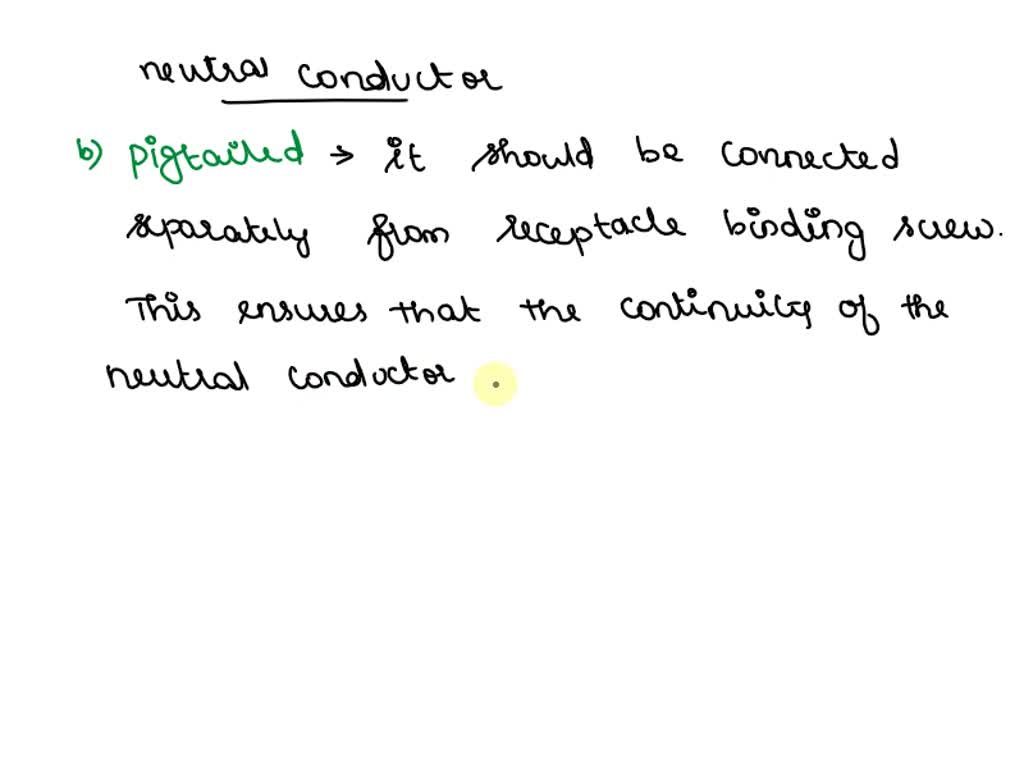 neutral conductor
b) pigtailed → it should be connected
separately from receptacle binding screw.
This ensures that the continuity of the
neutral conductor